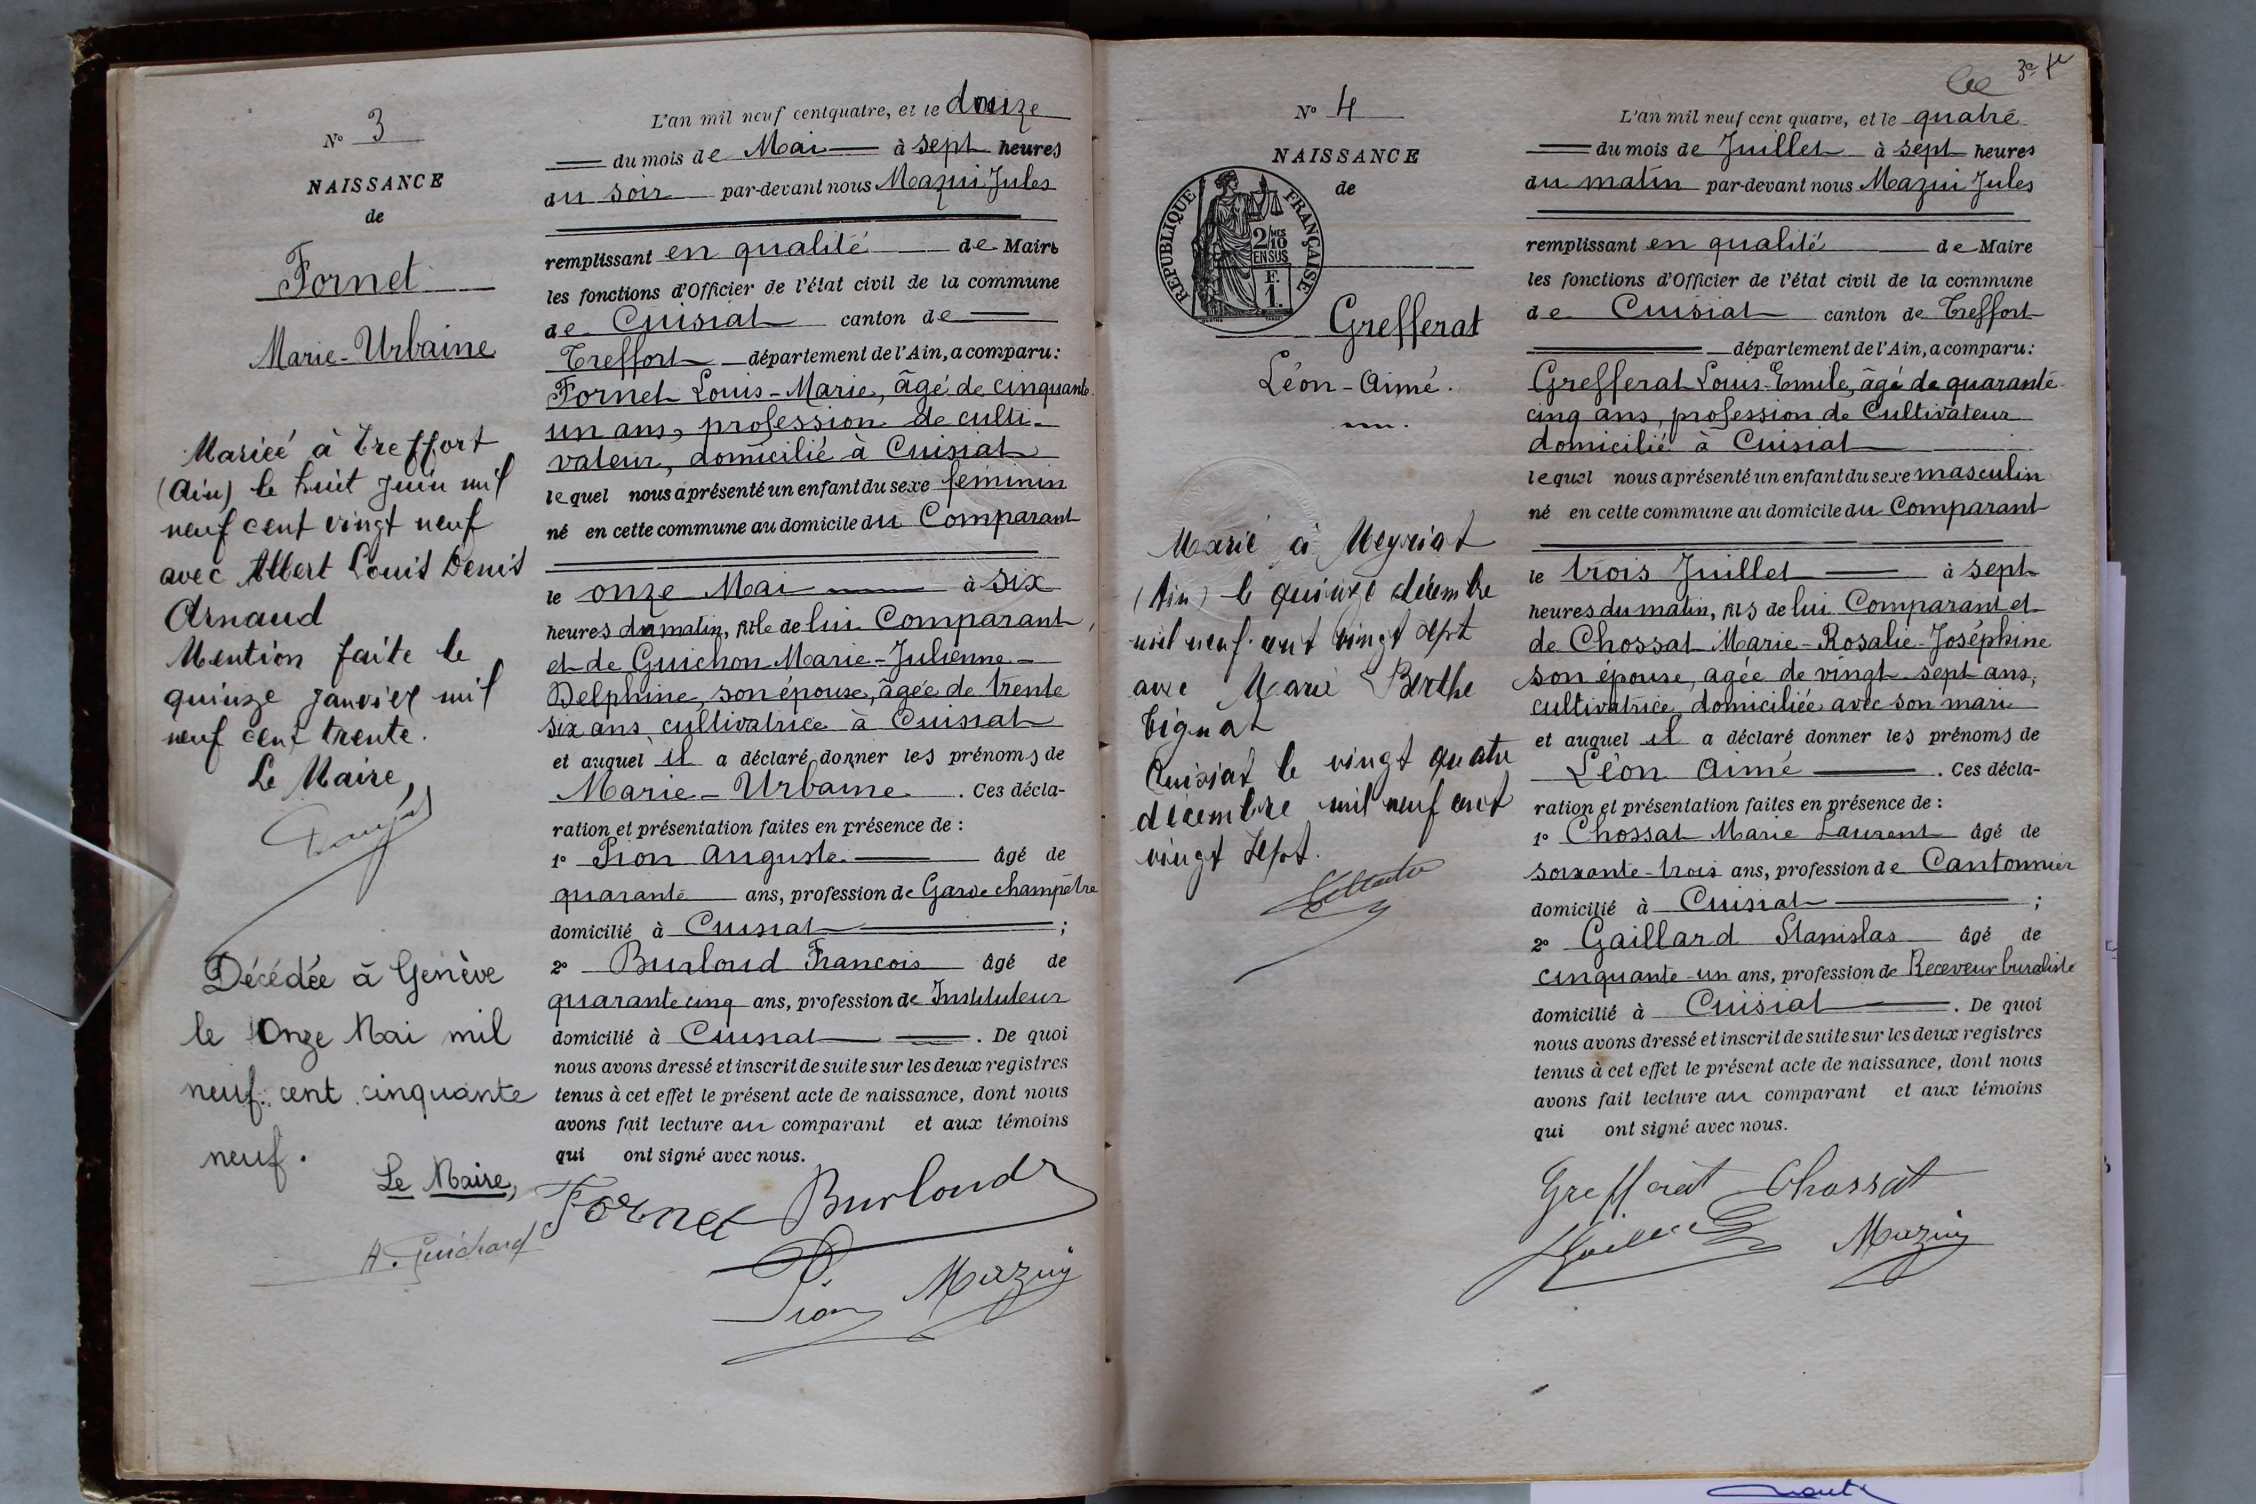 N° 3
NAISSANCE
de
Fornet
Marie-Urbaine
Mariée à Treffort
(Ain) le huit Juin mil
neuf cent vingt neuf
avec Albert Louis Denis
Arnaud
Mention faite le
quinze janvier mil
neuf cent trente.
Le Maire,
Décédée à Genève
le Onze Mai mil
neuf cent cinquante
neuf.
Le Maire,
A. Guichard
L'an mil neuf cent quatre, et le douze
du mois de Mai à sept heures
du soir par-devant nous Mazui Jules
remplissant en qualité de Maire
les fonctions d'Officier de l'état civil de la commune
de Cuisiat canton de
Treffort département de l'Ain, a comparu:
Fornet Louis-Marie, âgé de cinquante
un ans, profession de culti-
vateur, domicilié à Cuisiat
lequel nous a présenté un enfant du sexe féminin
né en cette commune au domicile du Comparant
le onze Mai à six
heures du matin, fille de lui Comparant,
et de Guichon Marie-Julienne-
Delphine, son épouse, âgée de trente
six ans, cultivatrice à Cuisiat
et auquel il a déclaré donner les prénoms de
Marie-Urbaine. Ces décla-
ration et présentation faites en présence de :
1° Pion Auguste âgé de
quarante ans, profession de Garde champêtre
domicilié à Cuisiat ;
2° Burloud François âgé de
quarante cinq ans, profession de Instituteur
domicilié à Cuisiat. De quoi
nous avons dressé et inscrit de suite sur les deux registres
tenus à cet effet le présent acte de naissance, dont nous
avons fait lecture au comparant et aux témoins
qui ont signé avec nous.
Fornet Burloud
Pion Mazuy
N° 4
NAISSANCE
de
RÉPUBLIQUE FRANÇAISE
2/10 MES
EN SUS
F.
1.
Grefferat
Léon-Aimé.
Marié à Meyriat
(Ain) le quinze décembre
mil neuf cent vingt sept
avec Marie Berthe
Tignat
Cuisiat le vingt quatre
décembre mil neuf cent
vingt sept.
3e fe
L'an mil neuf cent quatre, et le quatre
du mois de Juillet à sept heures
du matin par-devant nous Mazui Jules
remplissant en qualité de Maire
les fonctions d'Officier de l'état civil de la commune
de Cuisiat canton de Treffort
département de l'Ain, a comparu:
Grefferat Louis-Emile, âgé de quarante-
cinq ans, profession de Cultivateur
domicilié à Cuisiat
lequel nous a présenté un enfant du sexe masculin
né en cette commune au domicile du Comparant
le trois Juillet à sept
heures du matin, fils de lui Comparant et
de Chossat Marie-Rosalie-Joséphine
son épouse, agée de vingt-sept ans,
cultivatrice, domiciliée avec son mari
et auquel il a déclaré donner les prénoms de
Léon Aimé. Ces décla-
ration et présentation faites en présence de :
1° Chossat Marie Laurent âgé de
soixante-trois ans, profession de Cantonnier
domicilié à Cuisiat ;
2° Gaillard Stanislas âgé de
cinquante-un ans, profession de Receveur buraliste
domicilié à Cuisiat. De quoi
nous avons dressé et inscrit de suite sur les deux registres
tenus à cet effet le présent acte de naissance, dont nous
avons fait lecture au comparant et aux témoins
qui ont signé avec nous.
Grefferat Chossat
Mazuy